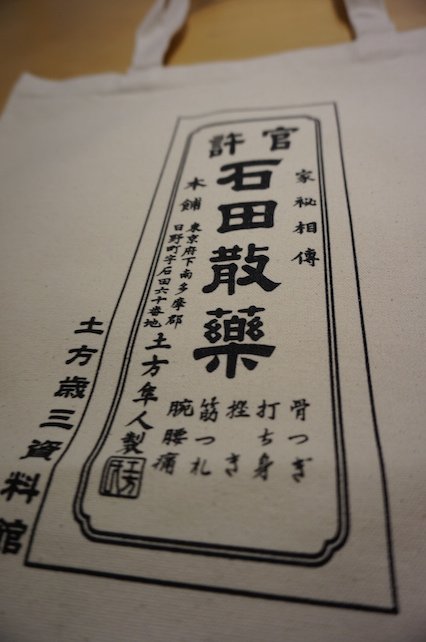 官許
家秘相傳
石田散藥
骨つぎ
打ち身
挫き
筋つれ
腕腰痛
本舗
東京府下南多摩郡
日野町字石田六十番地
土方隼人製
土方歳三資料館